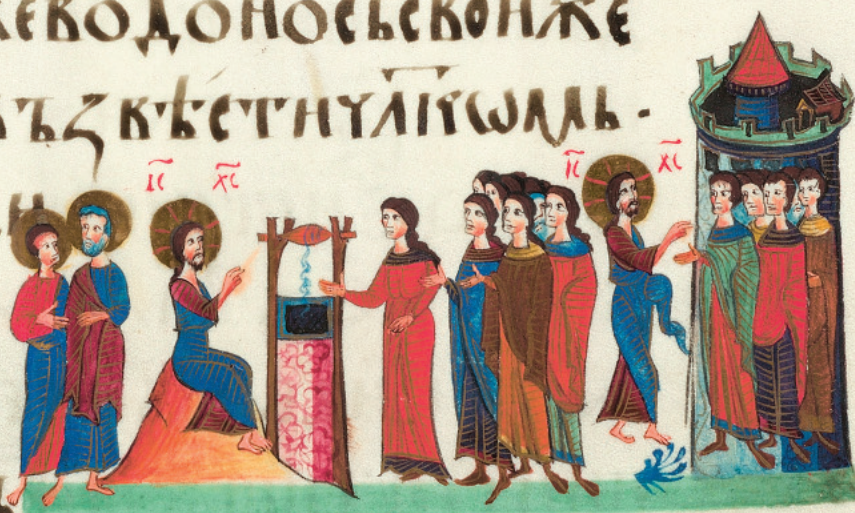 жеводоносьсвоиже
ъзвѣстичл҃кѡмь·
І҃С Х҃С
І҃С Х҃С